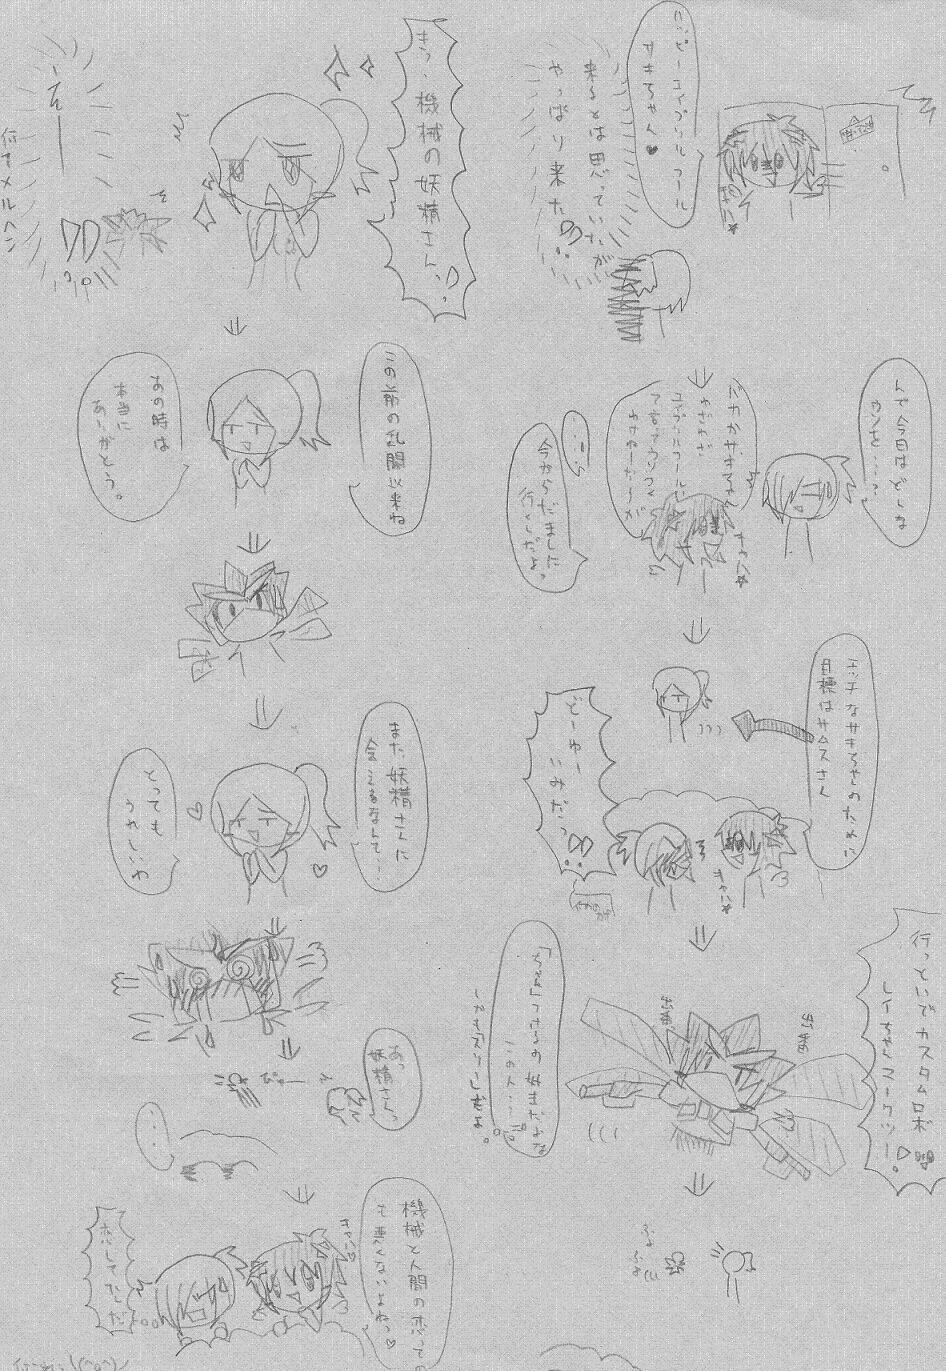 ハッピーエイプリルフール
サキちゃん♥
来るとは思っていたが
やっぱり来た!!
んで今日はどんな
ウソを……?
バカかサキちゃん
わざわざ
エイプリルフールに
って言ってウソつく
わけねーだろが
キャハ☆
今からだましに
行くんだよっ
エッチなサキちゃんのために
目標はサムスさん
どーゆー
いみだっ!!
キャハ☆
行っといでカスタムロボ
レイちゃんマークツー!!
出番
出番
「ちゃん」つけるの好きだよな
この人…
しかもマークツーだよ。
ふよ
ふよ
きゃ、機械の妖精さんっ!!
何てメルヘン
この前の乱闘以来ね
あの時は
本当に
ありがとう。
また妖精さんに
会えるなんて…
とっても
うれしいわ
あっ
妖精さんっ
ぴゅーっ
…
機械と人間の恋っての
も悪くないよねっ♥
キャハ
恋してたんだ